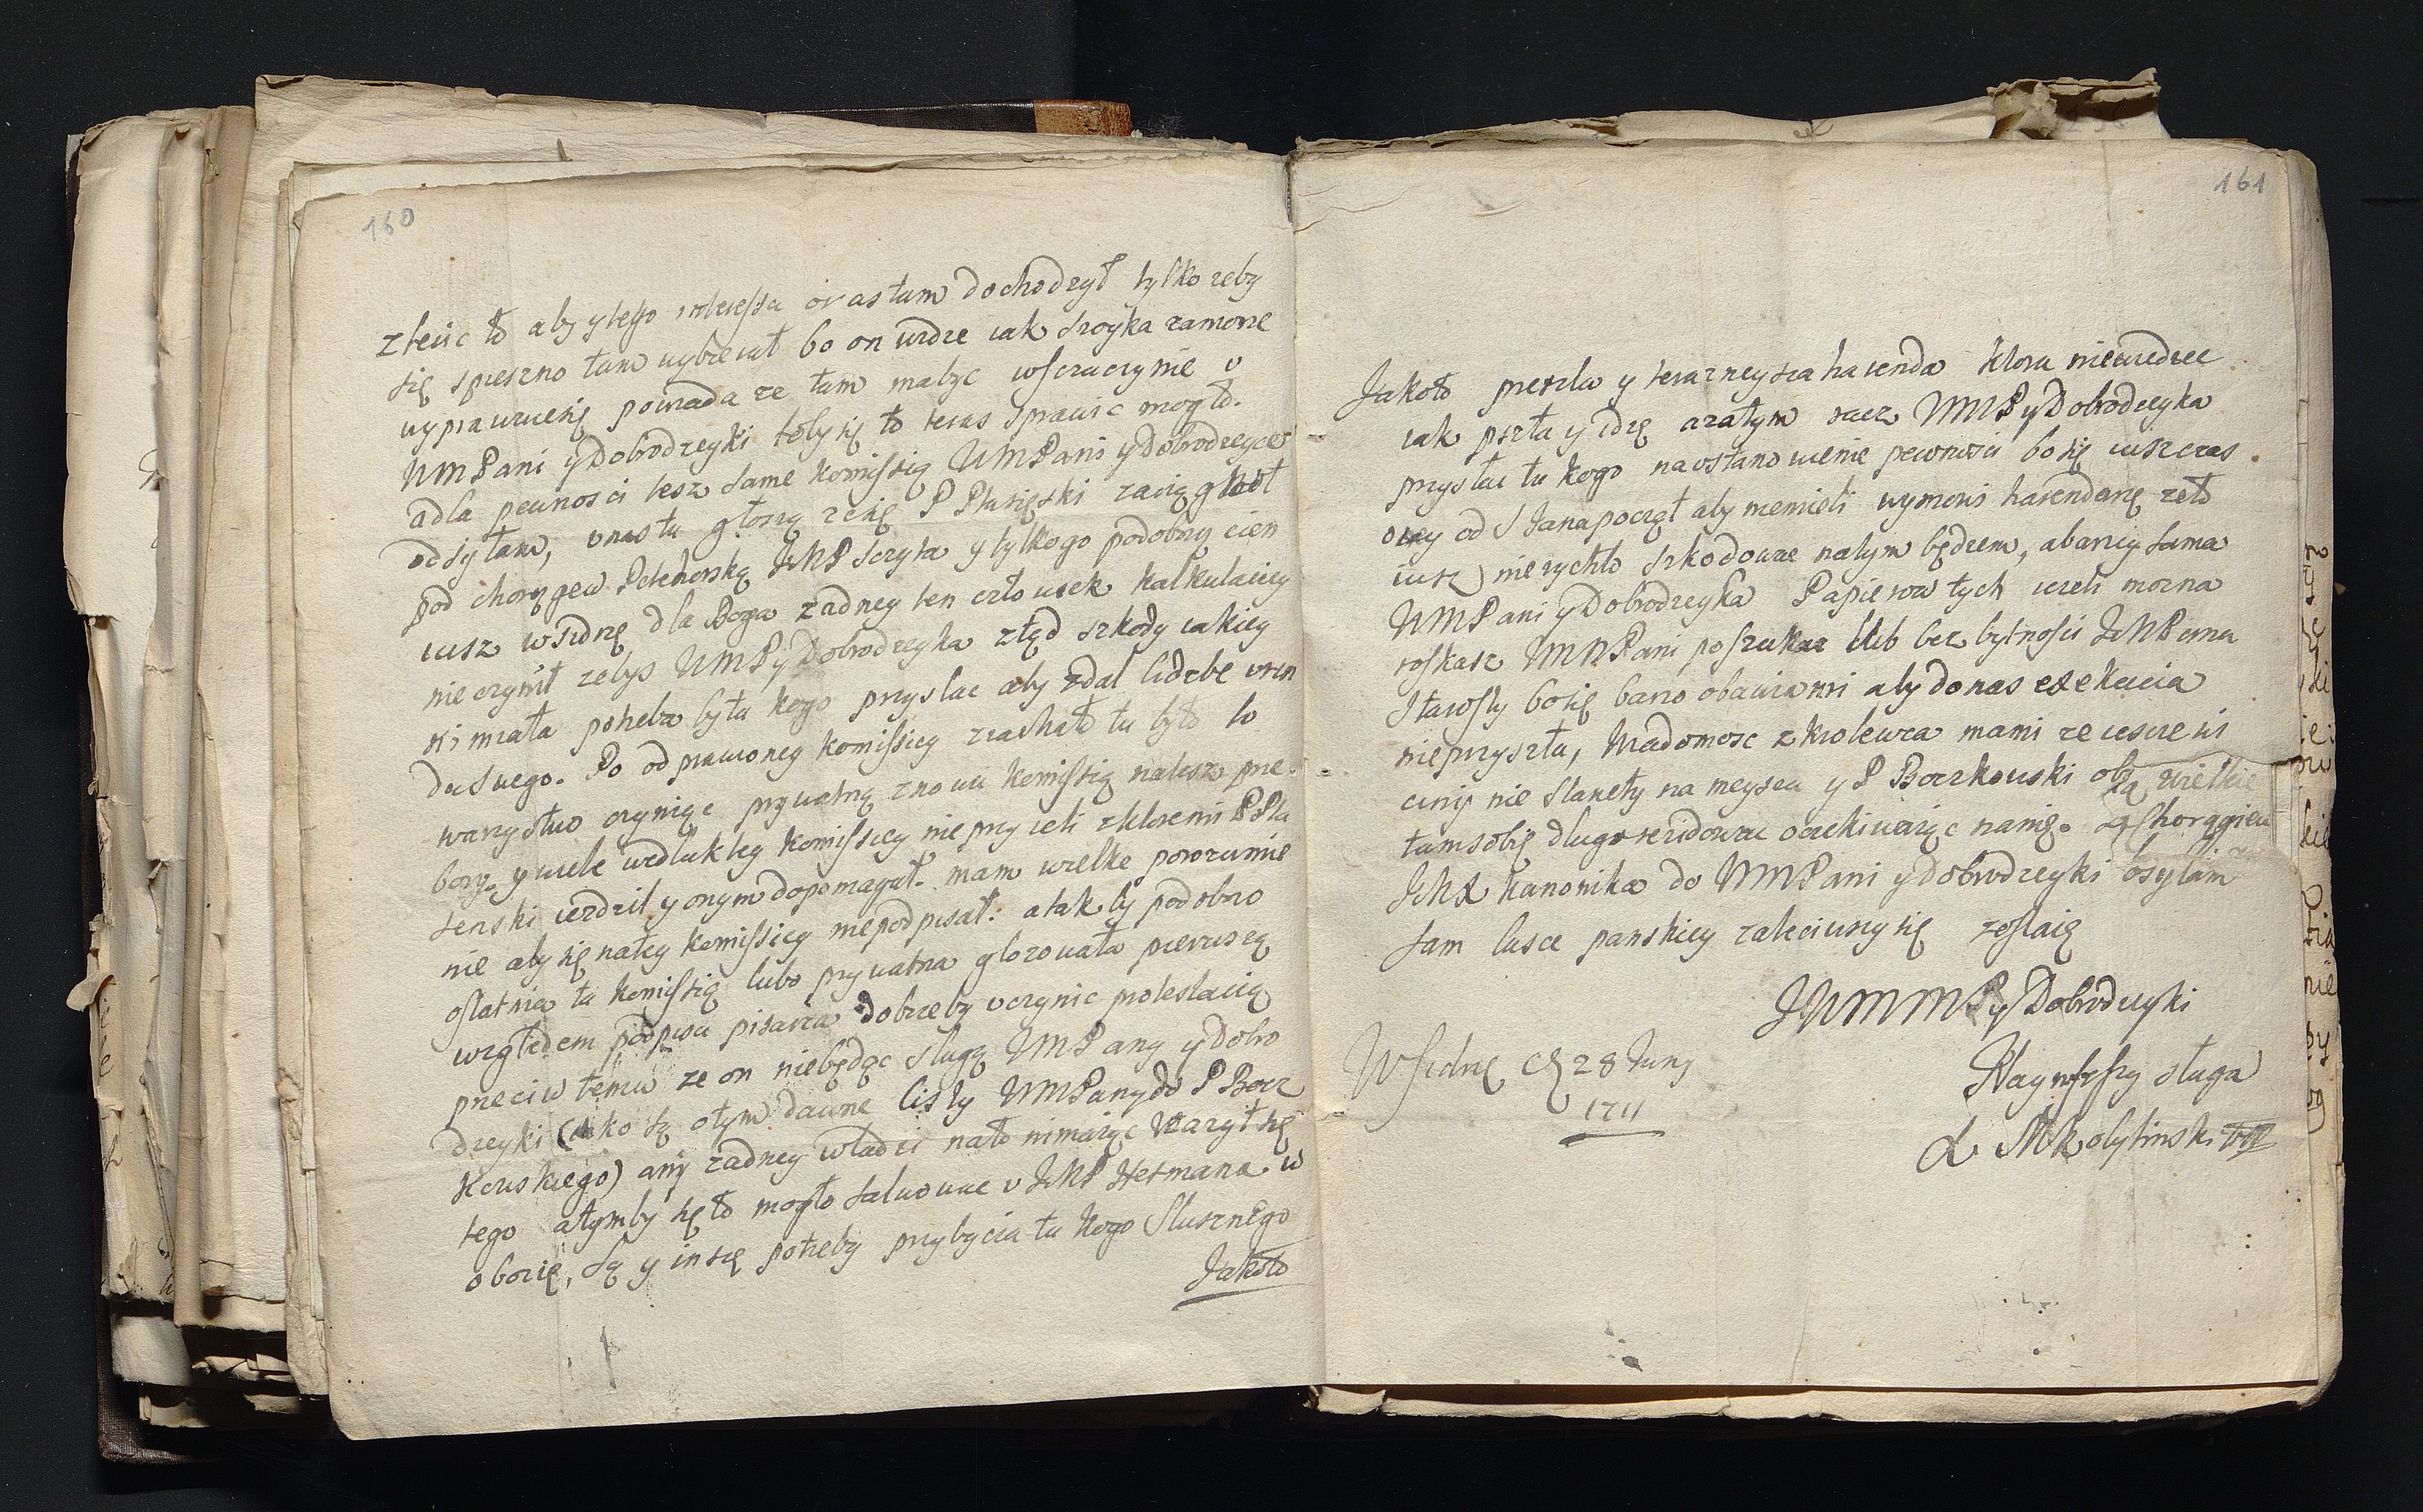 160
zlecic to aby y tego interessu oras tam dochodzył tylko zeby
się spieszno tam wybierał bo on idzie iak szoyka zamorze
wyprawuiesię powiada ze tam małzc v
UMPani y Dobrodzeyki toby się to teras sprawic mogło.
adla pewnosci tesz same komissią UMPani y Dobrodzeyce
odsyłam, vnastu głoszą zesię P Płasięski zaciągnoł
pod chorągew Petehorską JMP Sczyta y tylkogo podobny cien
iusz wsidrę dla Boga zadney ten człowiek kalkulaciey
nieczynił zebys UMPy Dobrodzeyka ztąd szkody iakiey
ni miała potreba była kogo przysłac aby zdal lidzbe
du swego. Po odprawioney komissiey ziachało tu było to
warzystwo czyniąc prywatną znowu komissią nalesz pre-
bory y wiele wedluktey komissiey nieprzyieli zktoremi PPła
senski iezdzil y onym dopomagał. mam wielke porozumie
nie aby się natey komissiey niepodpisał. atak by podobno
ostatnia ta komissią lubo prywatna glozowała pierwszą
względem podpisu pisarza dobrzeby vczynic protestacią
preciw temu ze on niebędąc slugą UMPany y Dobro
dzeyki (iako są otym dawne listy UMPany do P Bocz
kowskiego) any zadney władzi nato nimaiąc wazył się
tego atymby się to mogło salwowac v JMP Hetmana w
obozie, Są y inszę potreby przybycia tu kogo Slusznego
Jakoto
161
Jakoto preszła y terazneysza harenda ktora niewiedzec
iak pszła y idzę azatym racz UMPy Dobrodzeyka
przysłac tu kogo naostanowienie pewnosci bo się iusz czas
ony od S Jana począł aby niemieli wymowi harendarzę zeto
iusz nierychło szkodowac natym będziem, abarziey sama
UMPani y Dobrodzeyka Papierow tych iezeli mozna
roskasz UMPani poszukac lub bez bytnosci JMPana
Starosty bosię barzo obawiami aby donas exekucia
nieprzyszła, Wiadomosc zkrolewca mami ze ieszcze wi
ciny nie staneły na meyscu y P Boczkowski obą wielkie
tamsobię długo rezidowac oczekiwaiąc nanię. Chorągiew
JMX kanonika do UMPani y Dobrodzeyki osyłam
sam łasce panskiey zaleciwszy się zostaię
JWMMMPy Dobrodzeyki
W sidrę 28 Juny
1711
Naynizszy sługa